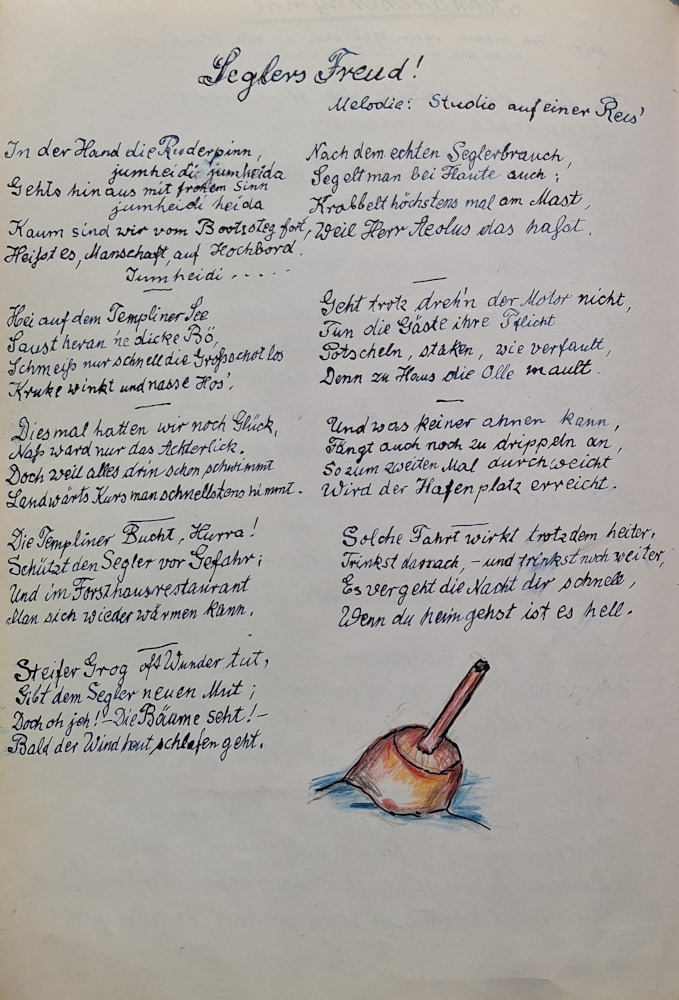 Seglers Freud!
Melodie: Studio auf einer Reis'
In der Hand die Ruderpinn,
jumheidi jumheida
Gehts hinaus mit frohem Sinn
jumheidi heida
Kaum sind wir vom Bootssteg fort,
Heißt es, Manschaft, auf Hochbord.
Jumheidi . . . . .
Hei auf dem Templiner See
Saust heran 'ne dicke Bö,
Schmeiß nur schnell die Großschot los
Kruke winkt und nasse Hos'.
Diesmal hatten wir noch Glück,
Naß ward nur das Achterlick.
Doch weil alles drin schon schwimmt
Landwärts Kurs man schnellstens nimmt.
Die Templiner Bucht, Hurra!
Schützt den Segler vor Gefahr;
Und im Forsthausrestaurant
Man sich wieder wärmen kann.
Steifer Grog oft Wunder tut,
Gibt dem Segler neuen Mut;
Doch oh jeh! - Die Bäume seht! -
Bald der Wind heut schlafen geht.
Nach dem echten Seglerbrauch,
Segelt man bei Flaute auch;
Krabbelt höchstens mal am Mast,
Weil Herr Aeolus das haßt.
Geht trotz dreh'n der Motor nicht,
Tun die Gäste ihre Pflicht
Potscheln, staken, wie verfault,
Denn zu Haus die Olle mault.
Und was keiner ahnen kann,
Fängt auch noch zu drippeln an,
So zum zweiten Mal durchweicht
Wird der Hafenplatz erreicht.
Solche Fahrt wirkt trotzdem heiter,
Trinkst darnach, - und trinkst noch weiter,
Es vergeht die Nacht dir schnell,
Wenn du heimgehst ist es hell.